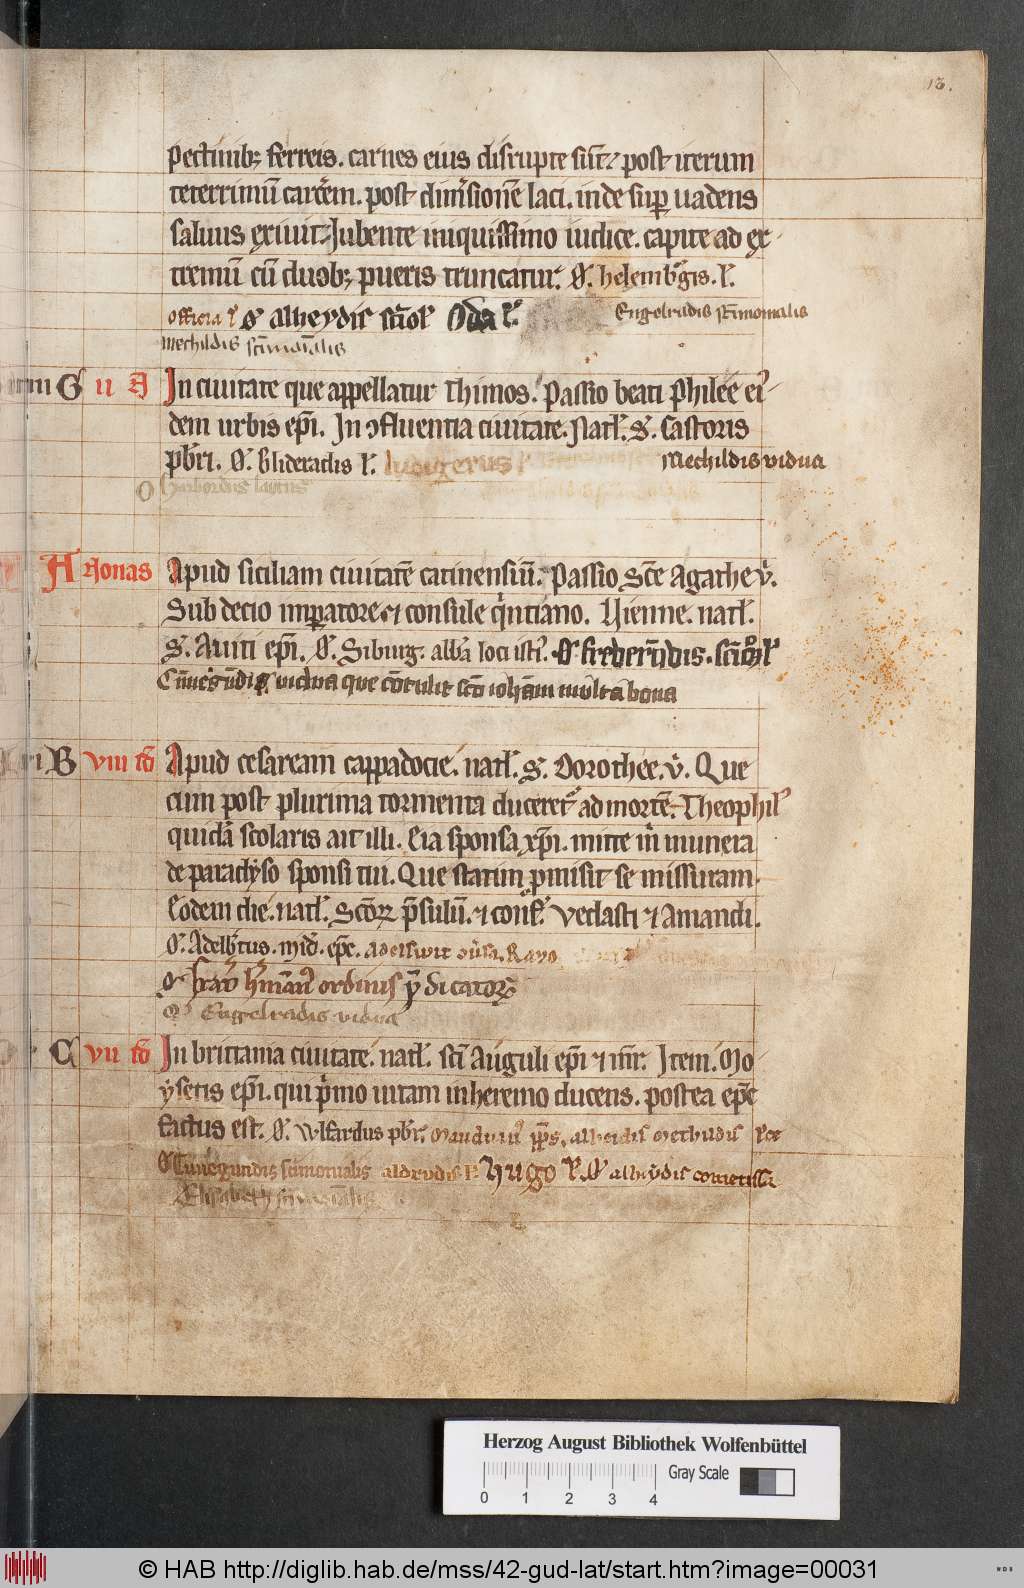 13.
pectinibꝫ ferreis. carnes eius disrupte sūt. post iterum
teterrimū carcēm. post dimīsionē laci. inde sup̄ uadens
saluus exiuit. Jubente iniquissimo iudice. capite ad ex
tremū cū duobꝫ pueris truncatur. O. helemb̄gis. l̄.
officia l̄ O alheydis sc̄iol Oda l̄. Engelradis sc̄imonialis
Mechildis sc̄imōialis
G ii A In ciuitate que appellatur Thimos. Passio beati Philee ei
dem urbis ep̄i. In ↄfluentia ciuitate. Natl̄. S. Castoris
pb̄ri. O. Blideradis l̄. ludigerus l Mechildis vidua
O Harbordus laicus
A Nonas Apud siciliam ciuitatē catinensiū. Passio Sc̄e Agathe v̄.
Sub decio imp̄atore ⁊ consule q̄ntiano. Uienne. natl̄.
S. Auiti ep̄i. O. Siburg. abb̄a loci isti. O frederūdis. sc̄io
Cūnegūdis vidua que cōtulit sc̄o ioh̄am multa bona
B viii id Apud cesaream cappadocie. natl̄. S. Dorothee. v̄. Que
cum post plurima tormenta duceret ad mortē. Theophil
quidā scolaris ait illi. Eia sponsa xp̄i. mitte m̄ munera
de paradyso sponsi tui. Que statim p̄misit se missuram.
Eodem die. natl̄. Scōꝝ p̄sulū. ⁊ conf. Vedasti ⁊ Amandi.
O. Adelb̄tus. mid. ep̄c. adelswit ūsa. Razo
O frat h̄mann ordinis p̄dicatorꝝ
O Engelradis vidua
C vii id In brittania ciuitate. natl̄. sc̄i Auguli ep̄i ⁊ m̄r. Item. Mo
ysetis ep̄i. qui p̄mo uitam in heremo ducens. postea ep̄c
factus est. O. Wlfardus pb̄r. alheidis Methildis
O Cunegundis sc̄imonialis aldrudis l̄ Hugo l̄. O alheydis cometissa
Elisabeth sc̄imonialis
Herzog August Bibliothek Wolfenbüttel
Gray Scale
0 1 2 3 4
© HAB http://diglib.hab.de/mss/42-gud-lat/start.htm?image=00031